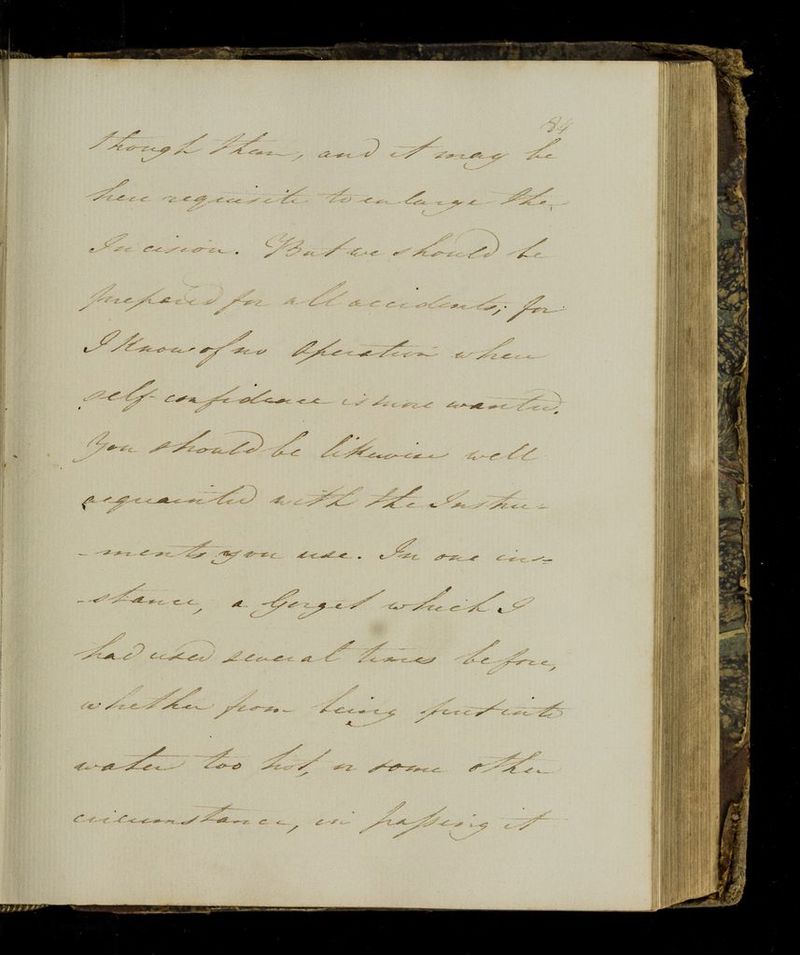 84
though them, and it may be
here requisite to enlarge the
Incision. But we should be
prepared for all accidents; for
I know of no Operation where
self-confidence is more wanted.
You should be likewise well
acquainted with the Instru-
-ments you use. In one in-
-stance, a Gorget which I
had used several times before,
whether from being put into
water too hot, or some other
circumstance, in passing it